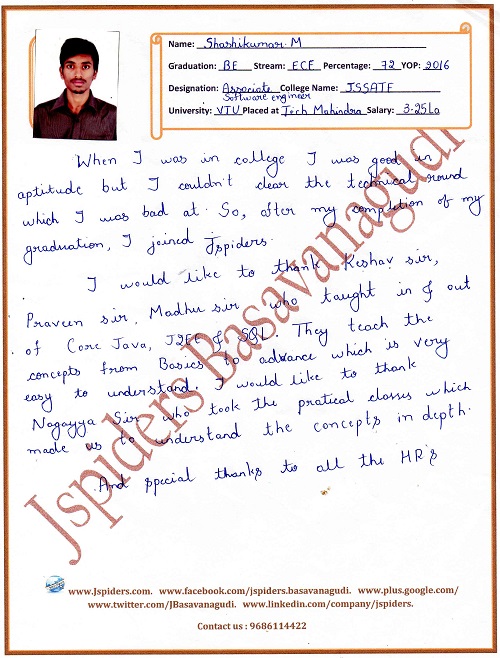 Name: Shashikumar. M
Graduation: BE Stream: ECE Percentage: 72 YOP: 2016
Designation: Associate College Name: JSSATE
Software engineer
University: VTU Placed at Tech Mahindra Salary: 3.25La
When I was in college I was good in
aptitude but I couldn't clear the technical round
which I was bad at. So, after my completion of my
graduation, I joined Jspiders.
I would like to thank Keshav sir,
Praveen sir, Madhu sir who taught in & out
of Core Java, J2EE & SQL. They teach the
concepts from Basics to advance which is very
easy to understand. I would like to thank
Nagayya Sir who took the pratical classes which
made us to understand the concepts in depth.
And special thanks to all the HR's
Jspiders Basavanagudi
www.Jspiders.com. www.facebook.com/jspiders.basavanagudi. www.plus.google.com/
www.twitter.com/JBasavanagudi. www.linkedin.com/company/jspiders.
Contact us : 9686114422